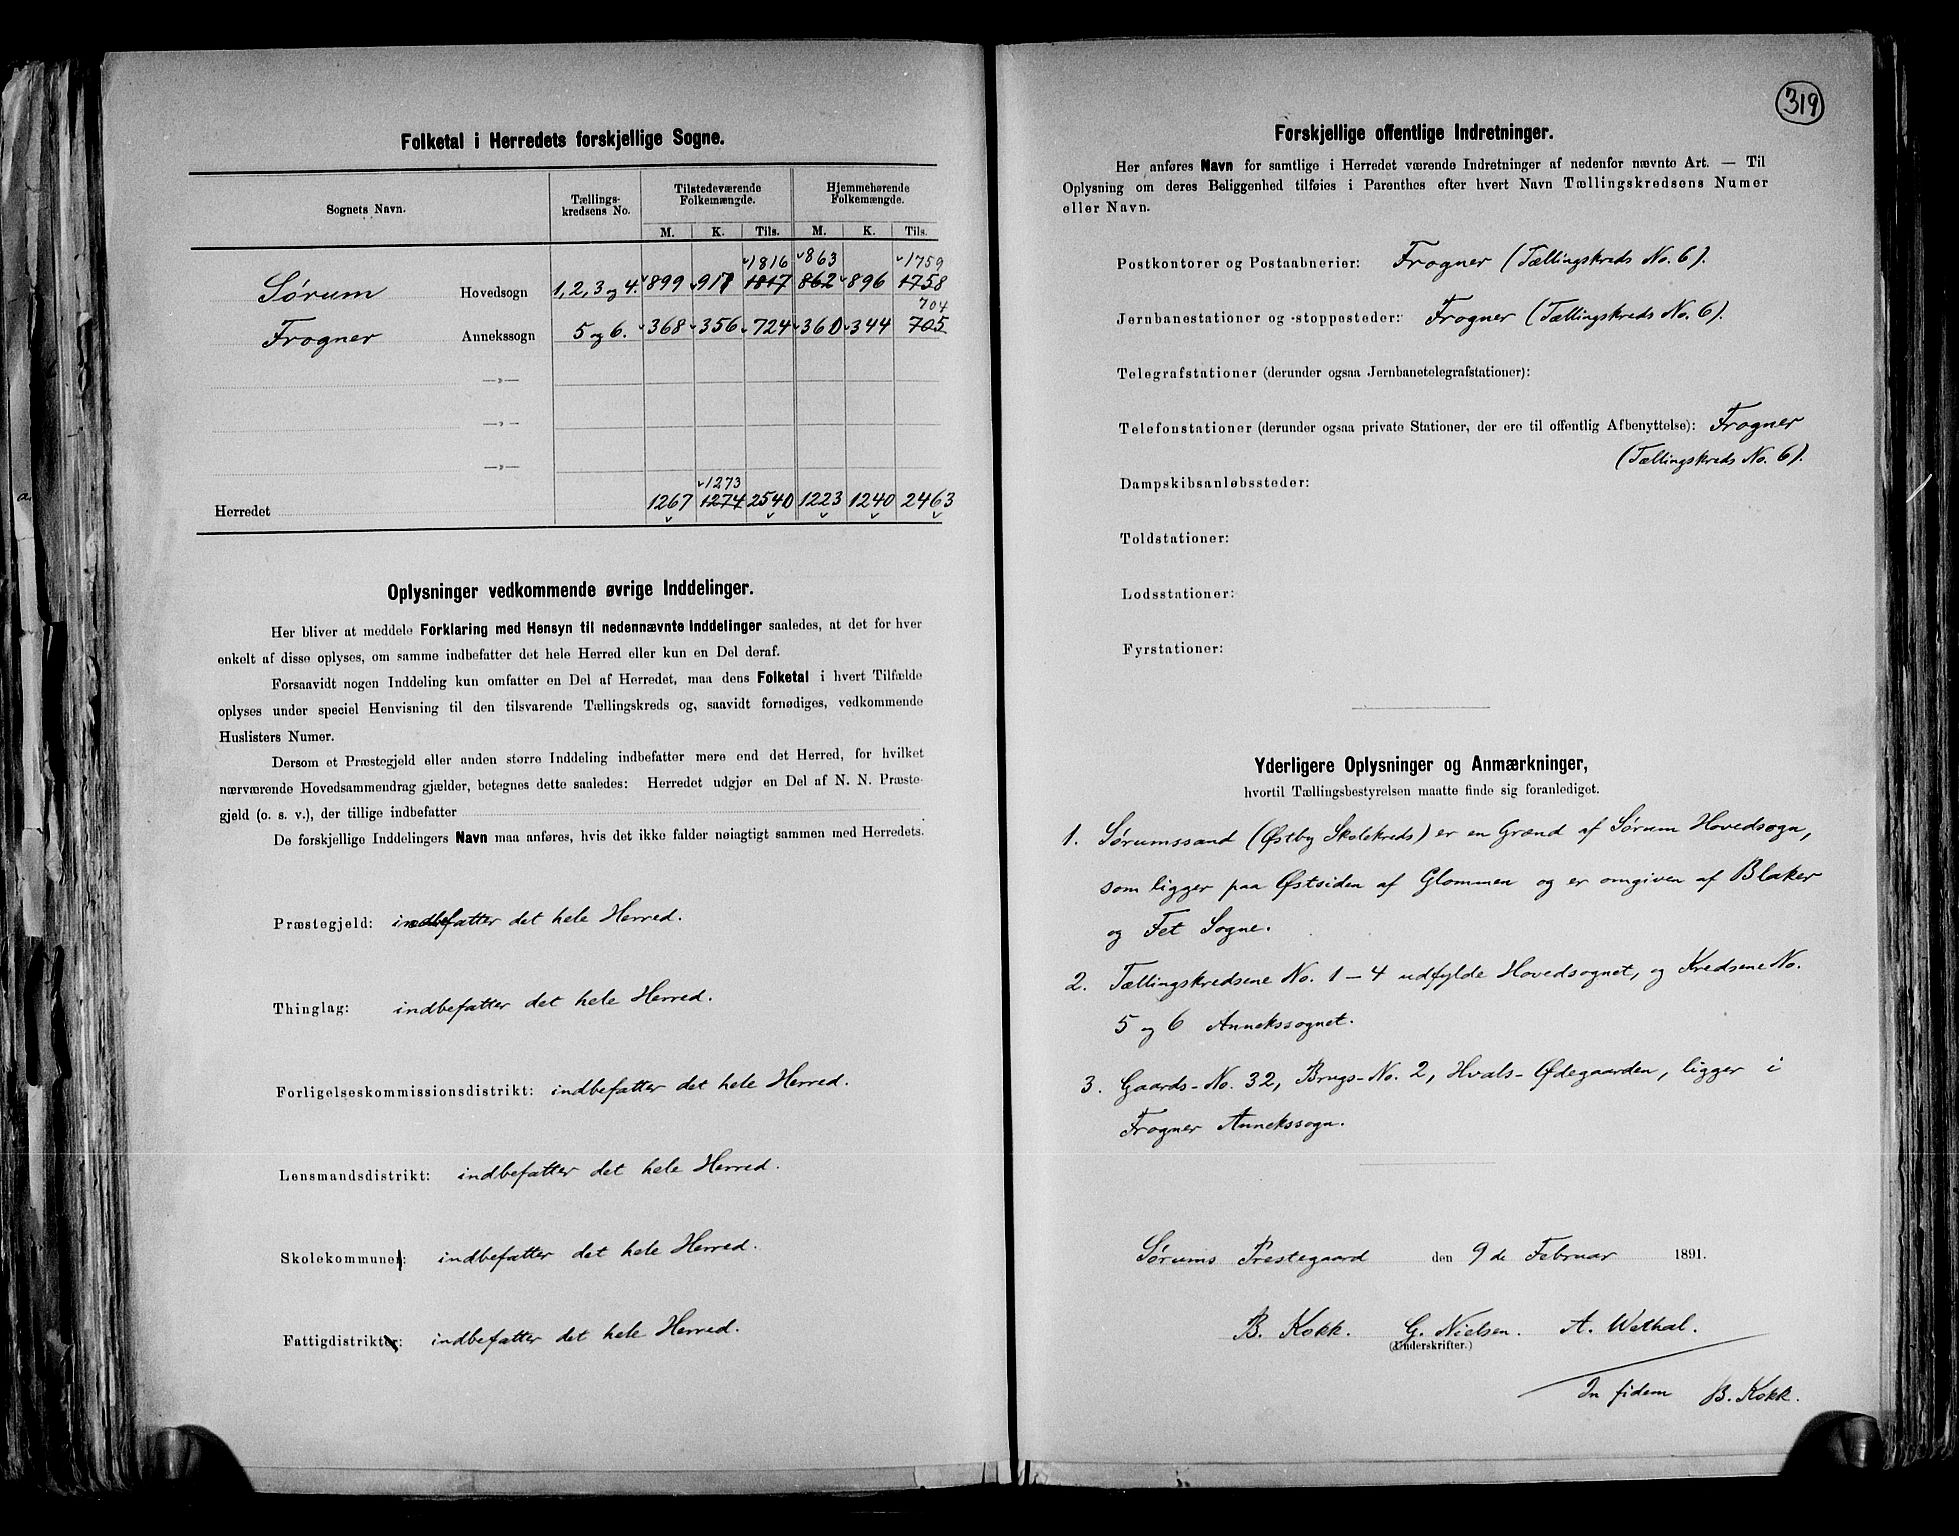 Folketal i Herredets forskjellige Sogne.
Sognets Navn. Tællings-kredsens No. Tilstedeværende Folkemængde. Hjemmehørende Folkemængde.
M. K. Tils. M. K. Tils.
1816 863 1759
Sørum Hovedsogn 1, 2, 3 og 4. 899 917 1817 862 896 1758
704
Frogner Annekssogn 5 og 6. 368 356 724 360 344 705
—»—
—»—
—»—
1273
Herredet 1267 1274 2540 1223 1240 2463
Oplysninger vedkommende øvrige Inddelinger.
Her bliver at meddele Forklaring med Hensyn til nedennævnte Inddelinger saaledes, at det for hver
enkelt af disse oplyses, om samme indbefatter det hele Herred eller kun en Del deraf.
Forsaavidt nogen Inddeling kun omfatter en Del af Herredet, maa dens Folketal i hvert Tilfælde
oplyses under speciel Henvisning til den tilsvarende Tællingskreds og, saavidt fornødiges, vedkommende
Huslisters Numer.
Dersom et Præstegjeld eller anden større Inddeling indbefatter mere end det Herred, for hvilket
nærværende Hovedsammendrag gjælder, betegnes dette saaledes: Herredet udgjør en Del af N. N. Præste-
gjeld (o. s. v.), der tillige indbefatter
De forskjellige Inddelingers Navn maa anføres, hvis det ikke falder nøiagtigt sammen med Herredets.
Præstegjeld: indbefatter det hele Herred.
Thinglag: indbefatter det hele Herred.
Forligelseskommissionsdistrikt: indbefatter det hele Herred.
Lensmandsdistrikt: indbefatter det hele Herred.
Skolekommuner: indbefatter det hele Herred.
Fattigdistrikter: indbefatter det hele Herred.
319
Forskjellige offentlige Indretninger.
Her anføres Navn for samtlige i Herredet værende Indretninger af nedenfor nævnte Art. — Til
Oplysning om deres Beliggenhed tilføies i Parenthes efter hvert Navn Tællingskredsens Numer
eller Navn.
Postkontorer og Postaabnerier: Frogner (Tællingskreds No. 6).
Jernbanestationer og -stoppesteder: Frogner (Tællingskreds No. 6).
Telegrafstationer (derunder ogsaa Jernbanetelegrafstationer):
Telefonstationer (derunder ogsaa private Stationer, der ere til offentlig Afbenyttelse): Frogner
(Tællingskreds No. 6).
Dampskibsanløbssteder:
Toldstationer:
Lodsstationer:
Fyrstationer:
Yderligere Oplysninger og Anmærkninger,
hvortil Tællingsbestyrelsen maatte finde sig foranlediget.
1. Sørumssand (Østby Skolekreds) er en Grænd af Sørum Hovedsogn,
som ligger paa Østsiden af Glommen og er omgiven af Blaker
og Fet Sogne.
2. Tællingskredsene No. 1 – 4 udfylde Hovedsognet, og Kredsene No.
5 og 6 Annekssognet.
3. Gaards-No. 32, Brugs-No. 2, Hvals-Ødegaarden, ligger i
Frogner Annekssogn.
Sørums Prestegaard den 9de Februar 1891.
B. Kokk. G. Nielsen. A. Wethal.
(Underskrifter.)
In fidem B. Kokk.